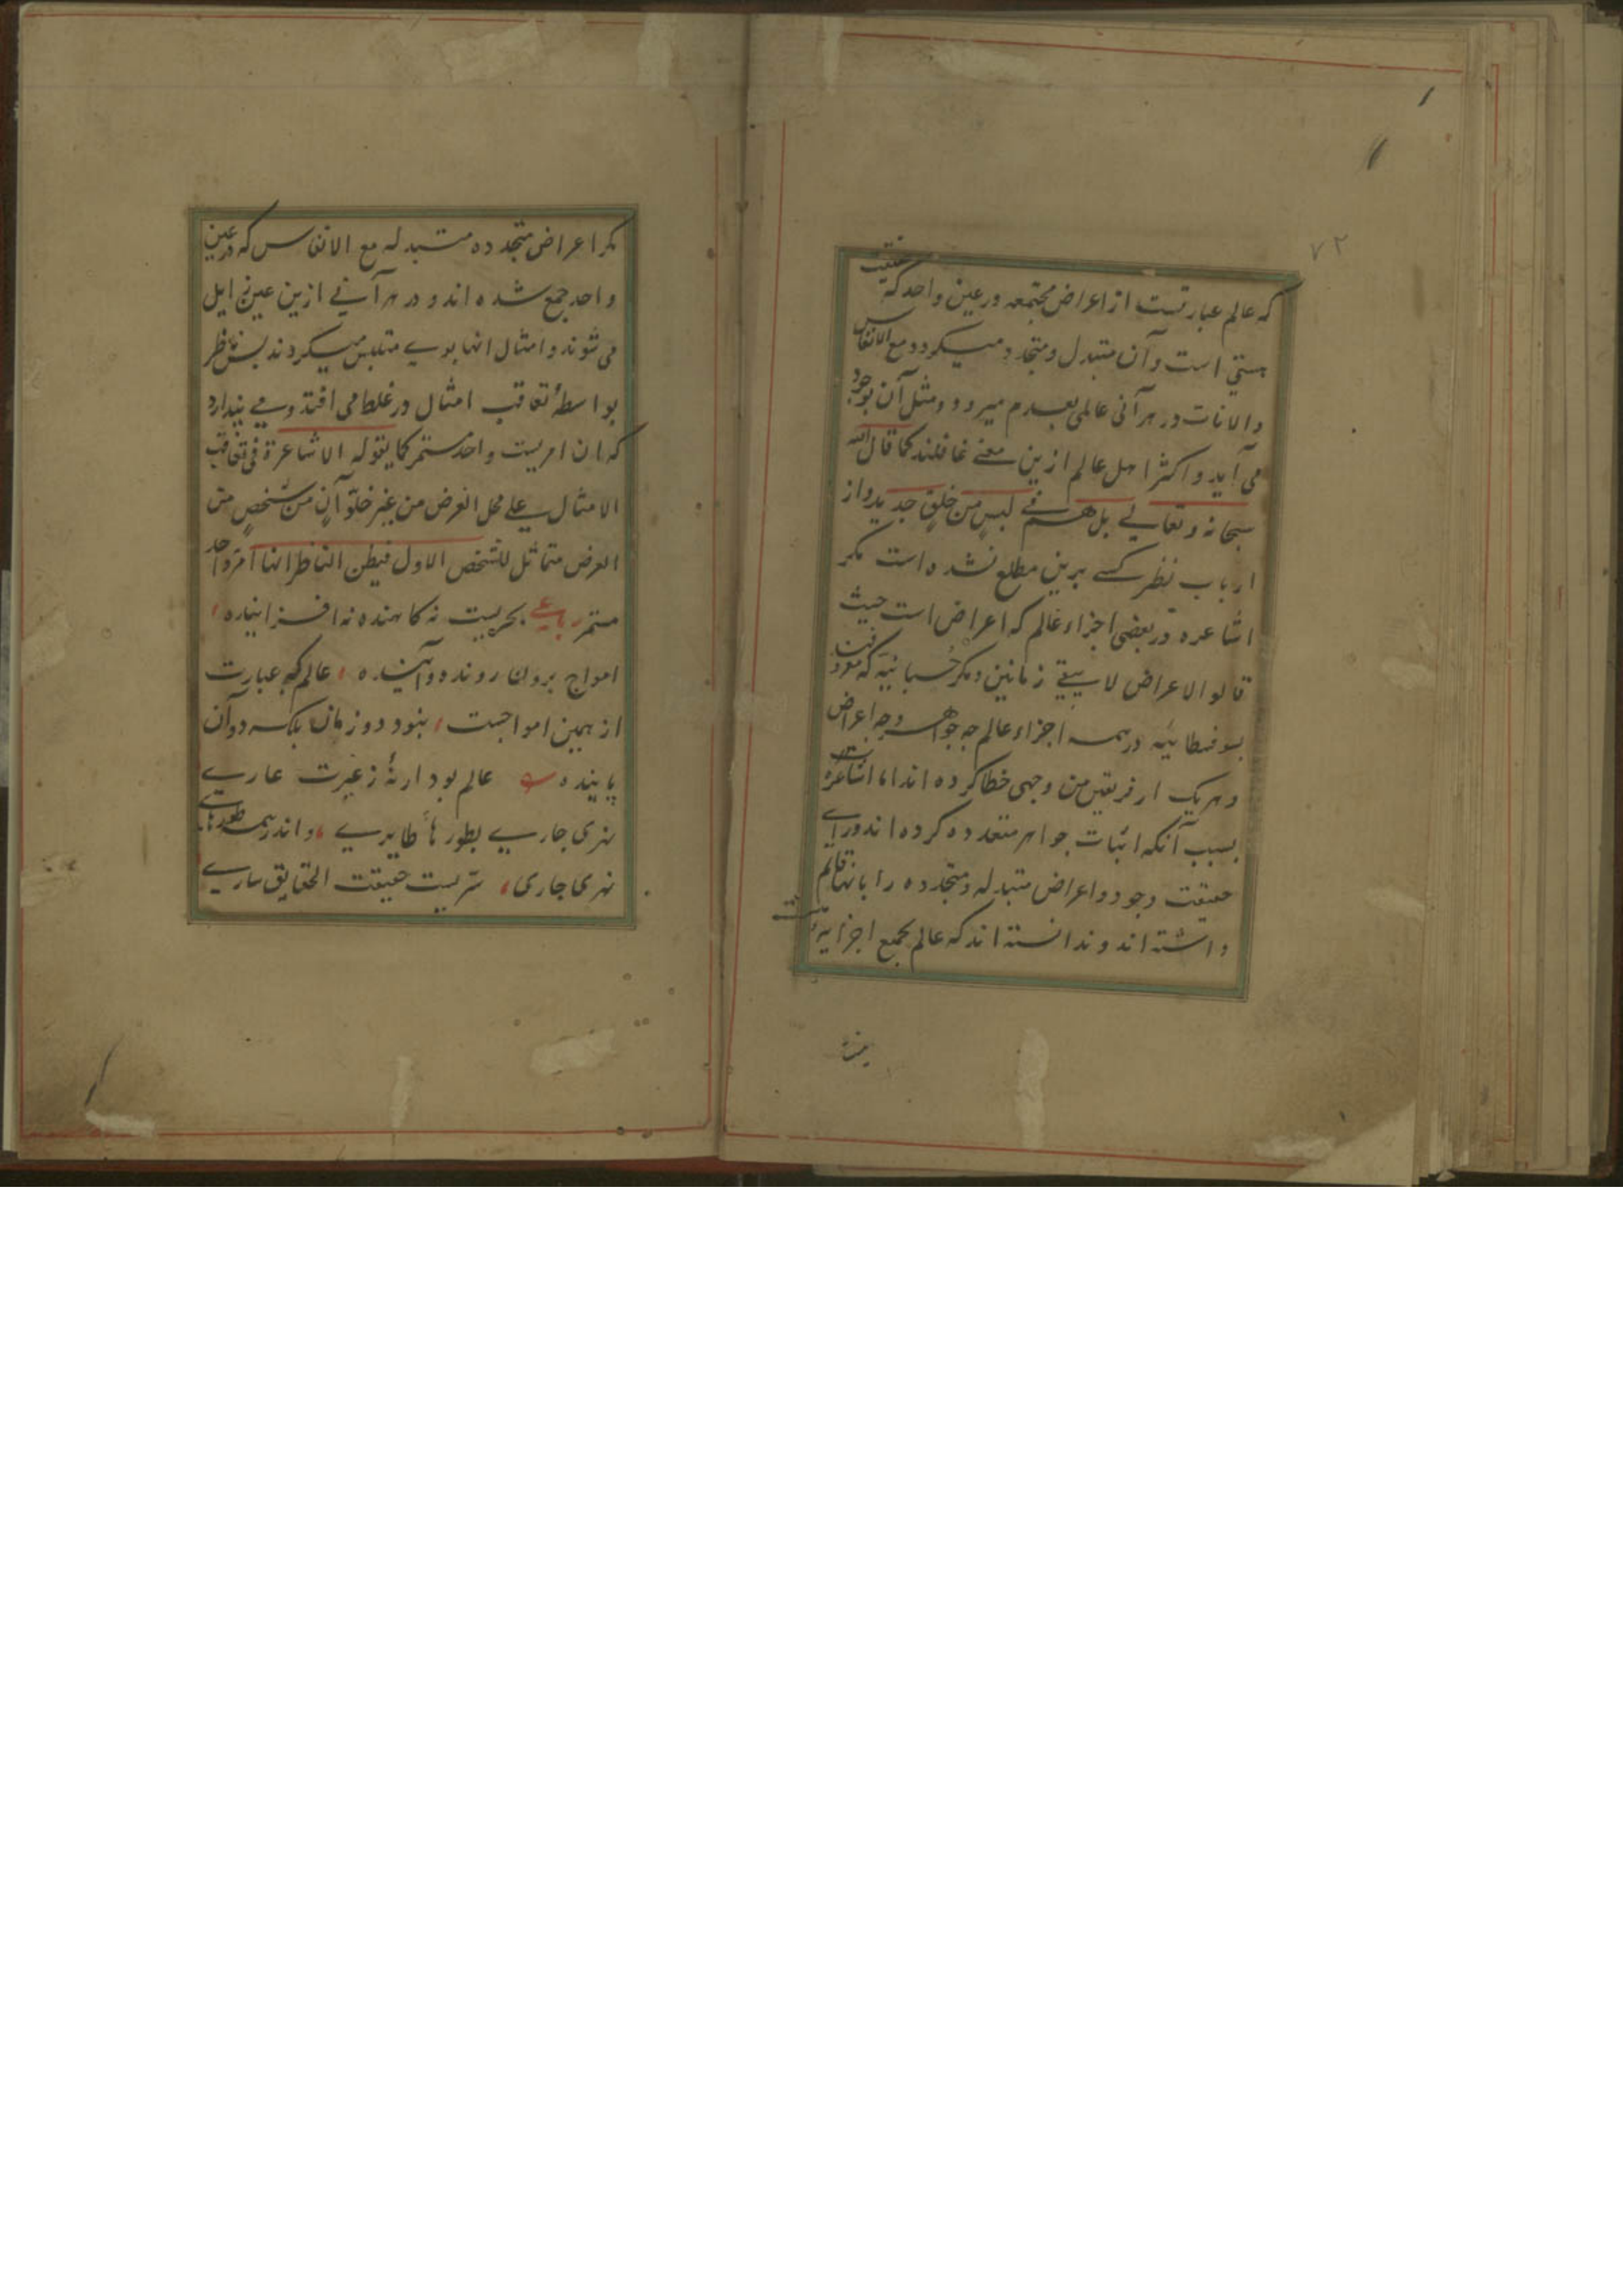 ۷۲
که عالم عبارتست از اعراض مجتمعه در عین واحد که حقیقت
هستی است و آن متبدل و متجدد میگردد مع الانفاس
والانات در هر آنی عالمی بعدم میرود و مثل آن بوجود
می آید و اکثر اهل عالم ازین معنی غافلند کما قال الله
سبحانه و تعالی بل هم فی لبس من خلق جدید و از
ارباب نظر کسی برین مطلع نشده است مکر
اشاعره در بعضی اجزاء عالم که اعراض است حیث
قالوا الاعراض لا یبقی زمانین و مکر حسبانیه که معروفند
بسوفسطائیه در همه اجزاء عالم چه جواهر و چه اعراض
و هر یک از فریقین من وجهی خطا کرده اند اما اشاعره
بسبب آنکه اثبات جواهر متعدده کرده اند ورای
حقیقت وجود و اعراض متبدله و متجدده را بانها قایم
داشته اند و ندانسته اند که عالم بجمیع اجزایه
نیست
مکر اعراض متجدده متبدله مع الانفاس که در عین
واحد جمع شده اند و در هر آنی ازین عین زایل
می شوند و امثال انها بوی متلبس میکردند پس ناظر
بواسطۀ تعاقب امثال در غلط می افتد و می پندارد
که ان امریست واحد مستمر کما یقوله الاشاعرة فی تعاقب
الامثال علی محل العرض من غیر خلوّ آن من شخص من
العرض متماثل للشخص الاول فیظن الناظر انها امر واحد
مستمر رباعی بحریست نه کاهنده نه افزاینده
امواج بر وان رونده و آینده عالم که عبارت
از همین امواجست نبود دو زمان بلکه دو آن
پاینده عالم بود ار نۀ ز عبرت عاری
نهری جاری بطورهأ طاری و اندر همه طورهای
نهری جاری سریست حقیقت الحقایق ساری